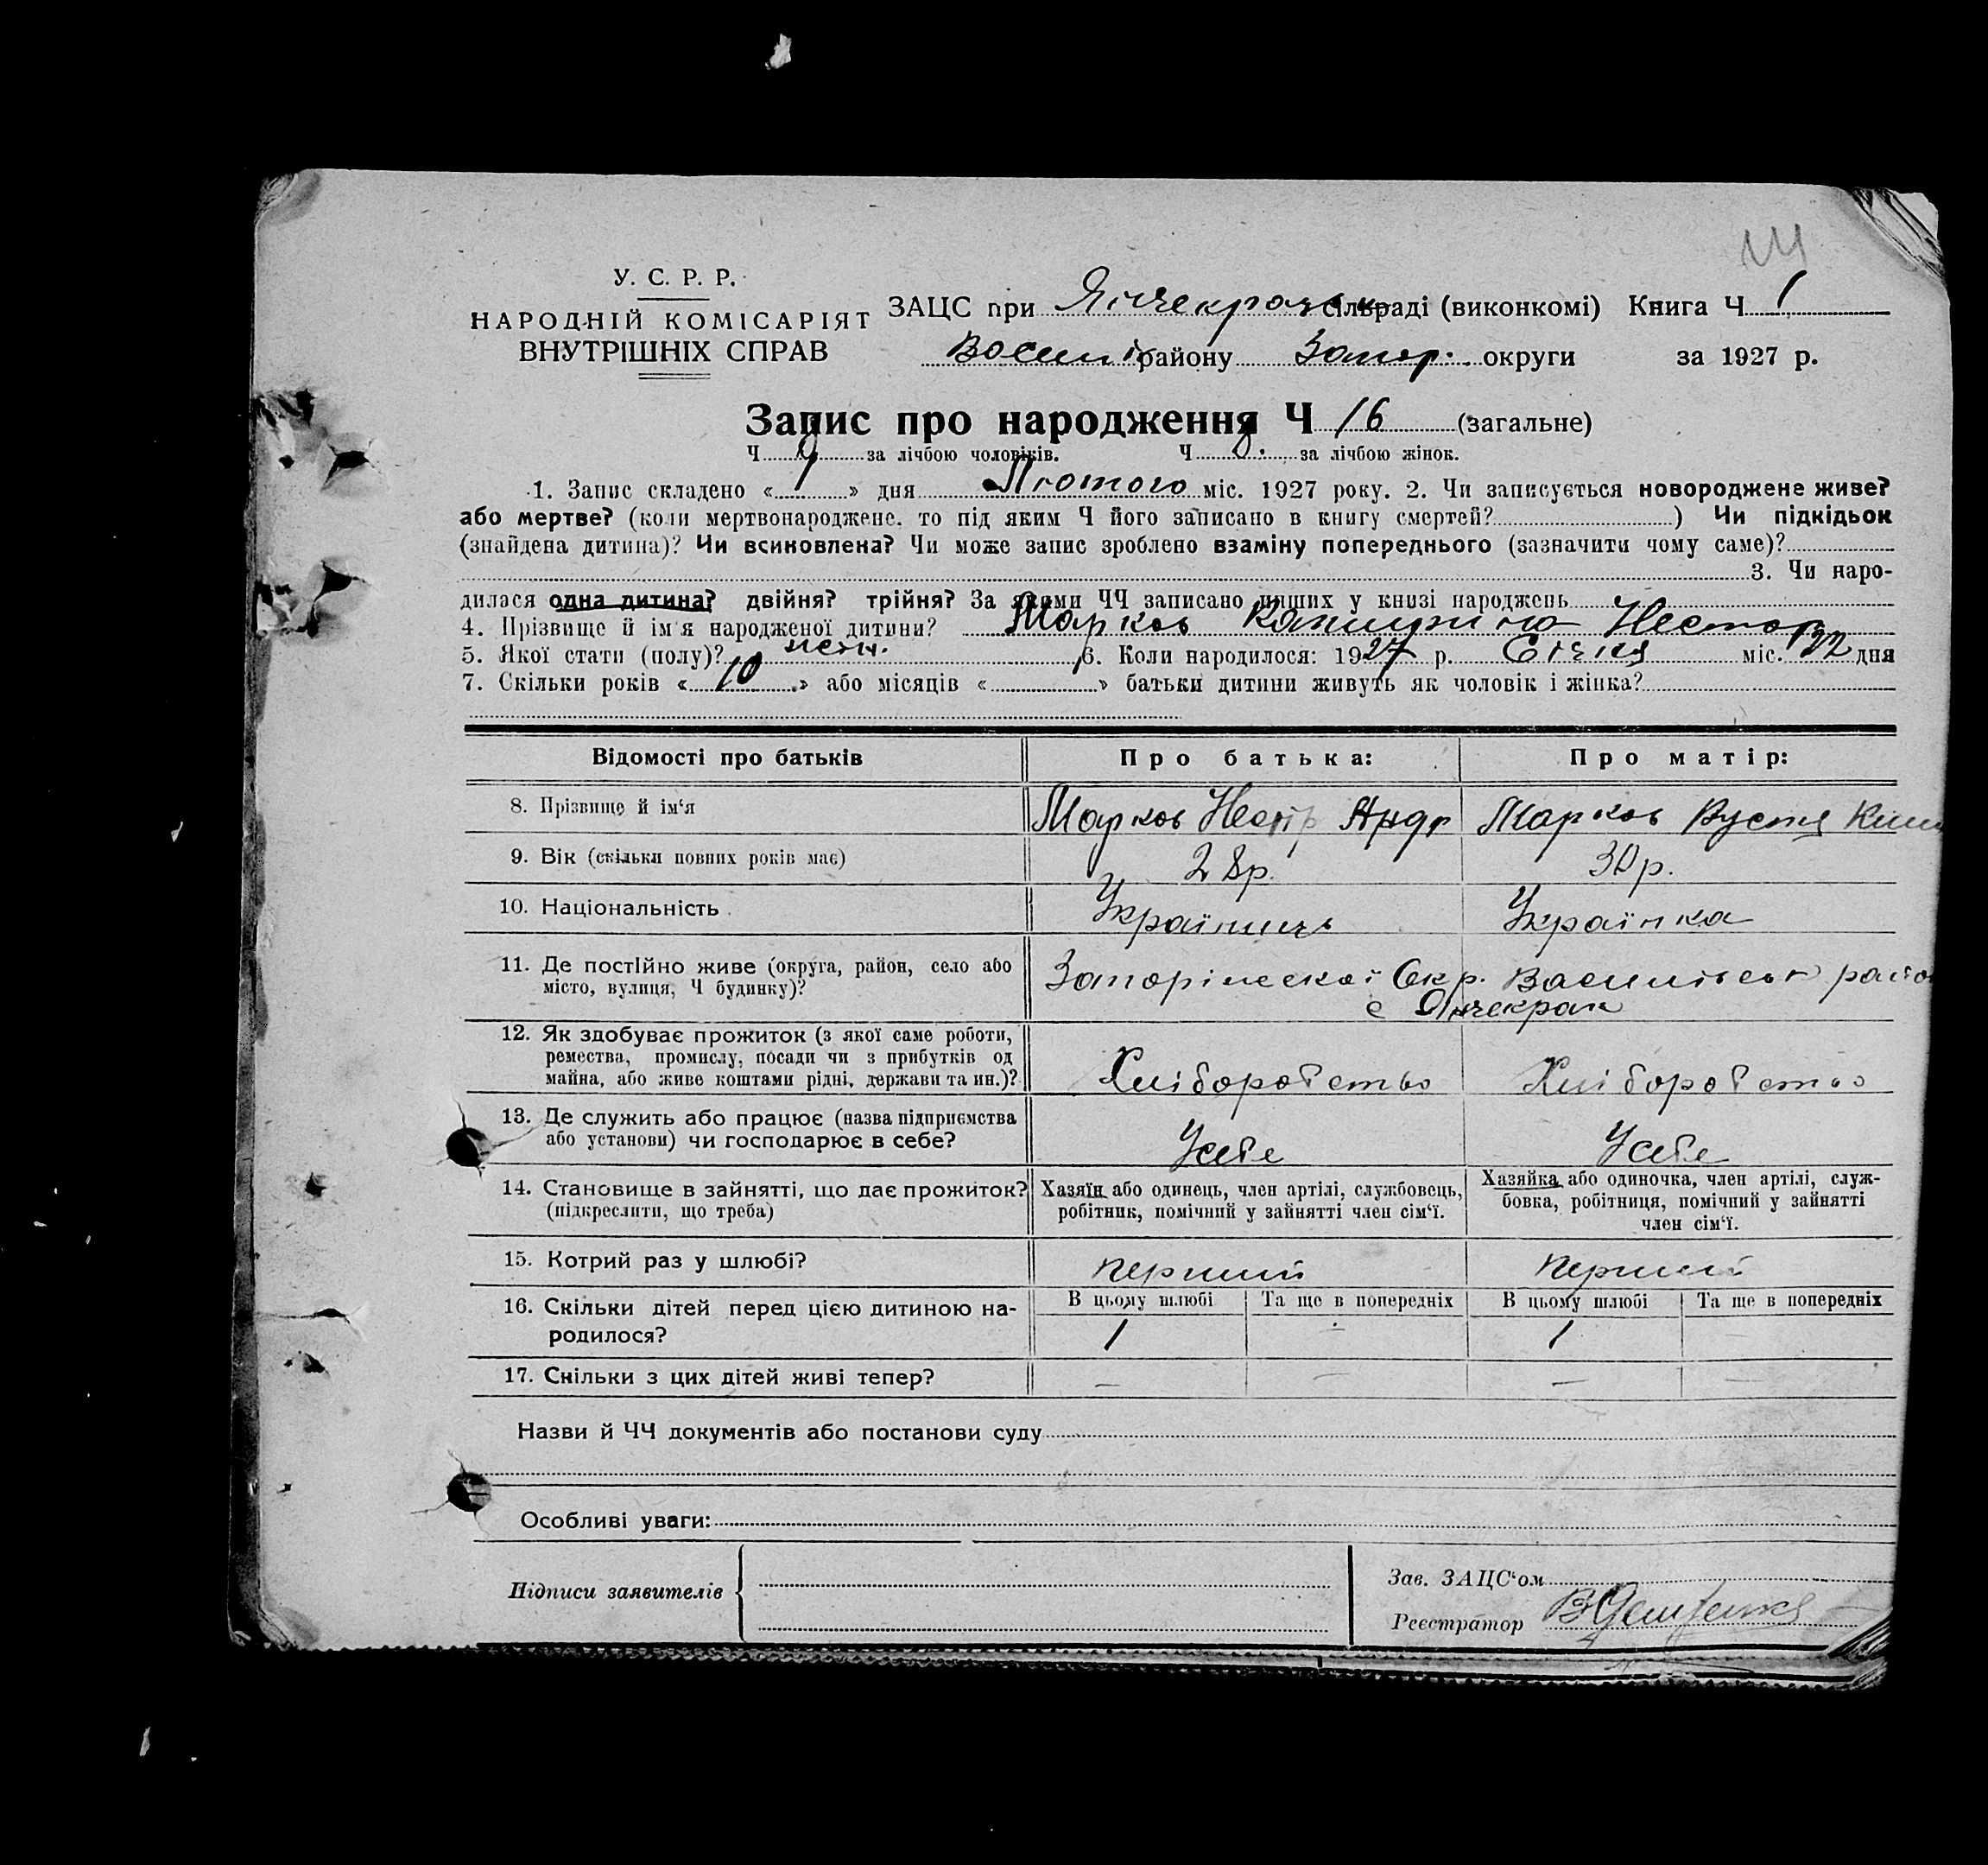 У. С. Р. Р.
НАРОДНІЙ КОМІСАРІЯТ
ВНУТРІШНІХ СПРАВ
ЗАЦС при Янчекрацьк сільраді (виконкомі) Книга Ч 1
Васили району Запор. округи за 1927 р.
Запис про народження Ч 16 (загальне)
Ч 9 за лічбою чоловіків. Ч 8. за лічбою жінок.
1. Запис складено « 1 » дня Лютого міс. 1927 року. 2. Чи записується новороджене живе?
або мертве? (коли мертвонароджене, то під яким Ч його записано в книгу смертей? ) Чи підкідьок
(знайдена дитина)? Чи всиновлена? Чи може запис зроблено взаміну попереднього (зазначити чому саме)?
3. Чи наро-
дилася одна дитина? двійня? трійня? За якими ЧЧ записано инших у книзі народжень
4. Прізвище й ім'я народженої дитини? Марков Нестор
5. Якої стати (полу)? 6. Коли народилося: 1927 р. Січня міс. 22 дня
7. Скільки років « 10 » або місяців « » батьки дитини живуть як чоловік і жінка?
Відомості про батьків Про батька: Про матір:
8. Прізвище й ім'я Марков Нестр Андр Марков Вустя
9. Вік (скільки повних років має) 28р. 30р.
10. Національність Українець Українка
11. Де постійно живе (округа, район, село або
місто, вулиця, Ч будинку)? Запоріжскоі Окр. Васильевськ район
с Янчекрак
12. Як здобуває прожиток (з якої саме роботи,
ремества, промислу, посади чи з прибутків од
майна, або живе коштами рідні, держави та ин.)? Хліборобство Хліборобство
13. Де служить або працює (назва підприємства
або установи) чи господарює в себе? Усебе Усебе
14. Становище в зайнятті, що дає прожиток?
(підкреслити, що треба)
Хазяїн або одинець, член артілі, службовець,
робітник, помічний у зайнятті член сім'ї.
Хазяйка або одиночка, член артілі, служ-
бовка, робітниця, помічний у зайнятті
член сім'ї.
15. Котрий раз у шлюбі? перший перший
16. Скільки дітей перед цією дитиною на-
родилося?
В цьому шлюбі Та ще в попередніх В цьому шлюбі Та ще в попередніх
1 - 1 -
17. Скільки з цих дітей живі тепер? - - - -
Назви й ЧЧ документів або постанови суду
Особливі уваги:
Підписи заявителів
Зав. ЗАЦС'ом
Реєстратор